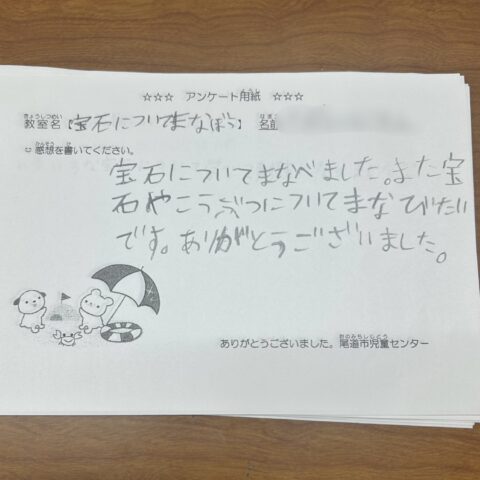 ☆☆☆ アンケート用紙 ☆☆☆
きょうしつめい なまえ
教室名【宝石についてまなぼう】 名前
かんそう か
☺感想を書いてください。
宝石についてまなべました。また宝
石やこうぶつについてまなびたい
です。ありがとうございました。
おのみちしじどう
ありがとうございました。尾道市児童センター